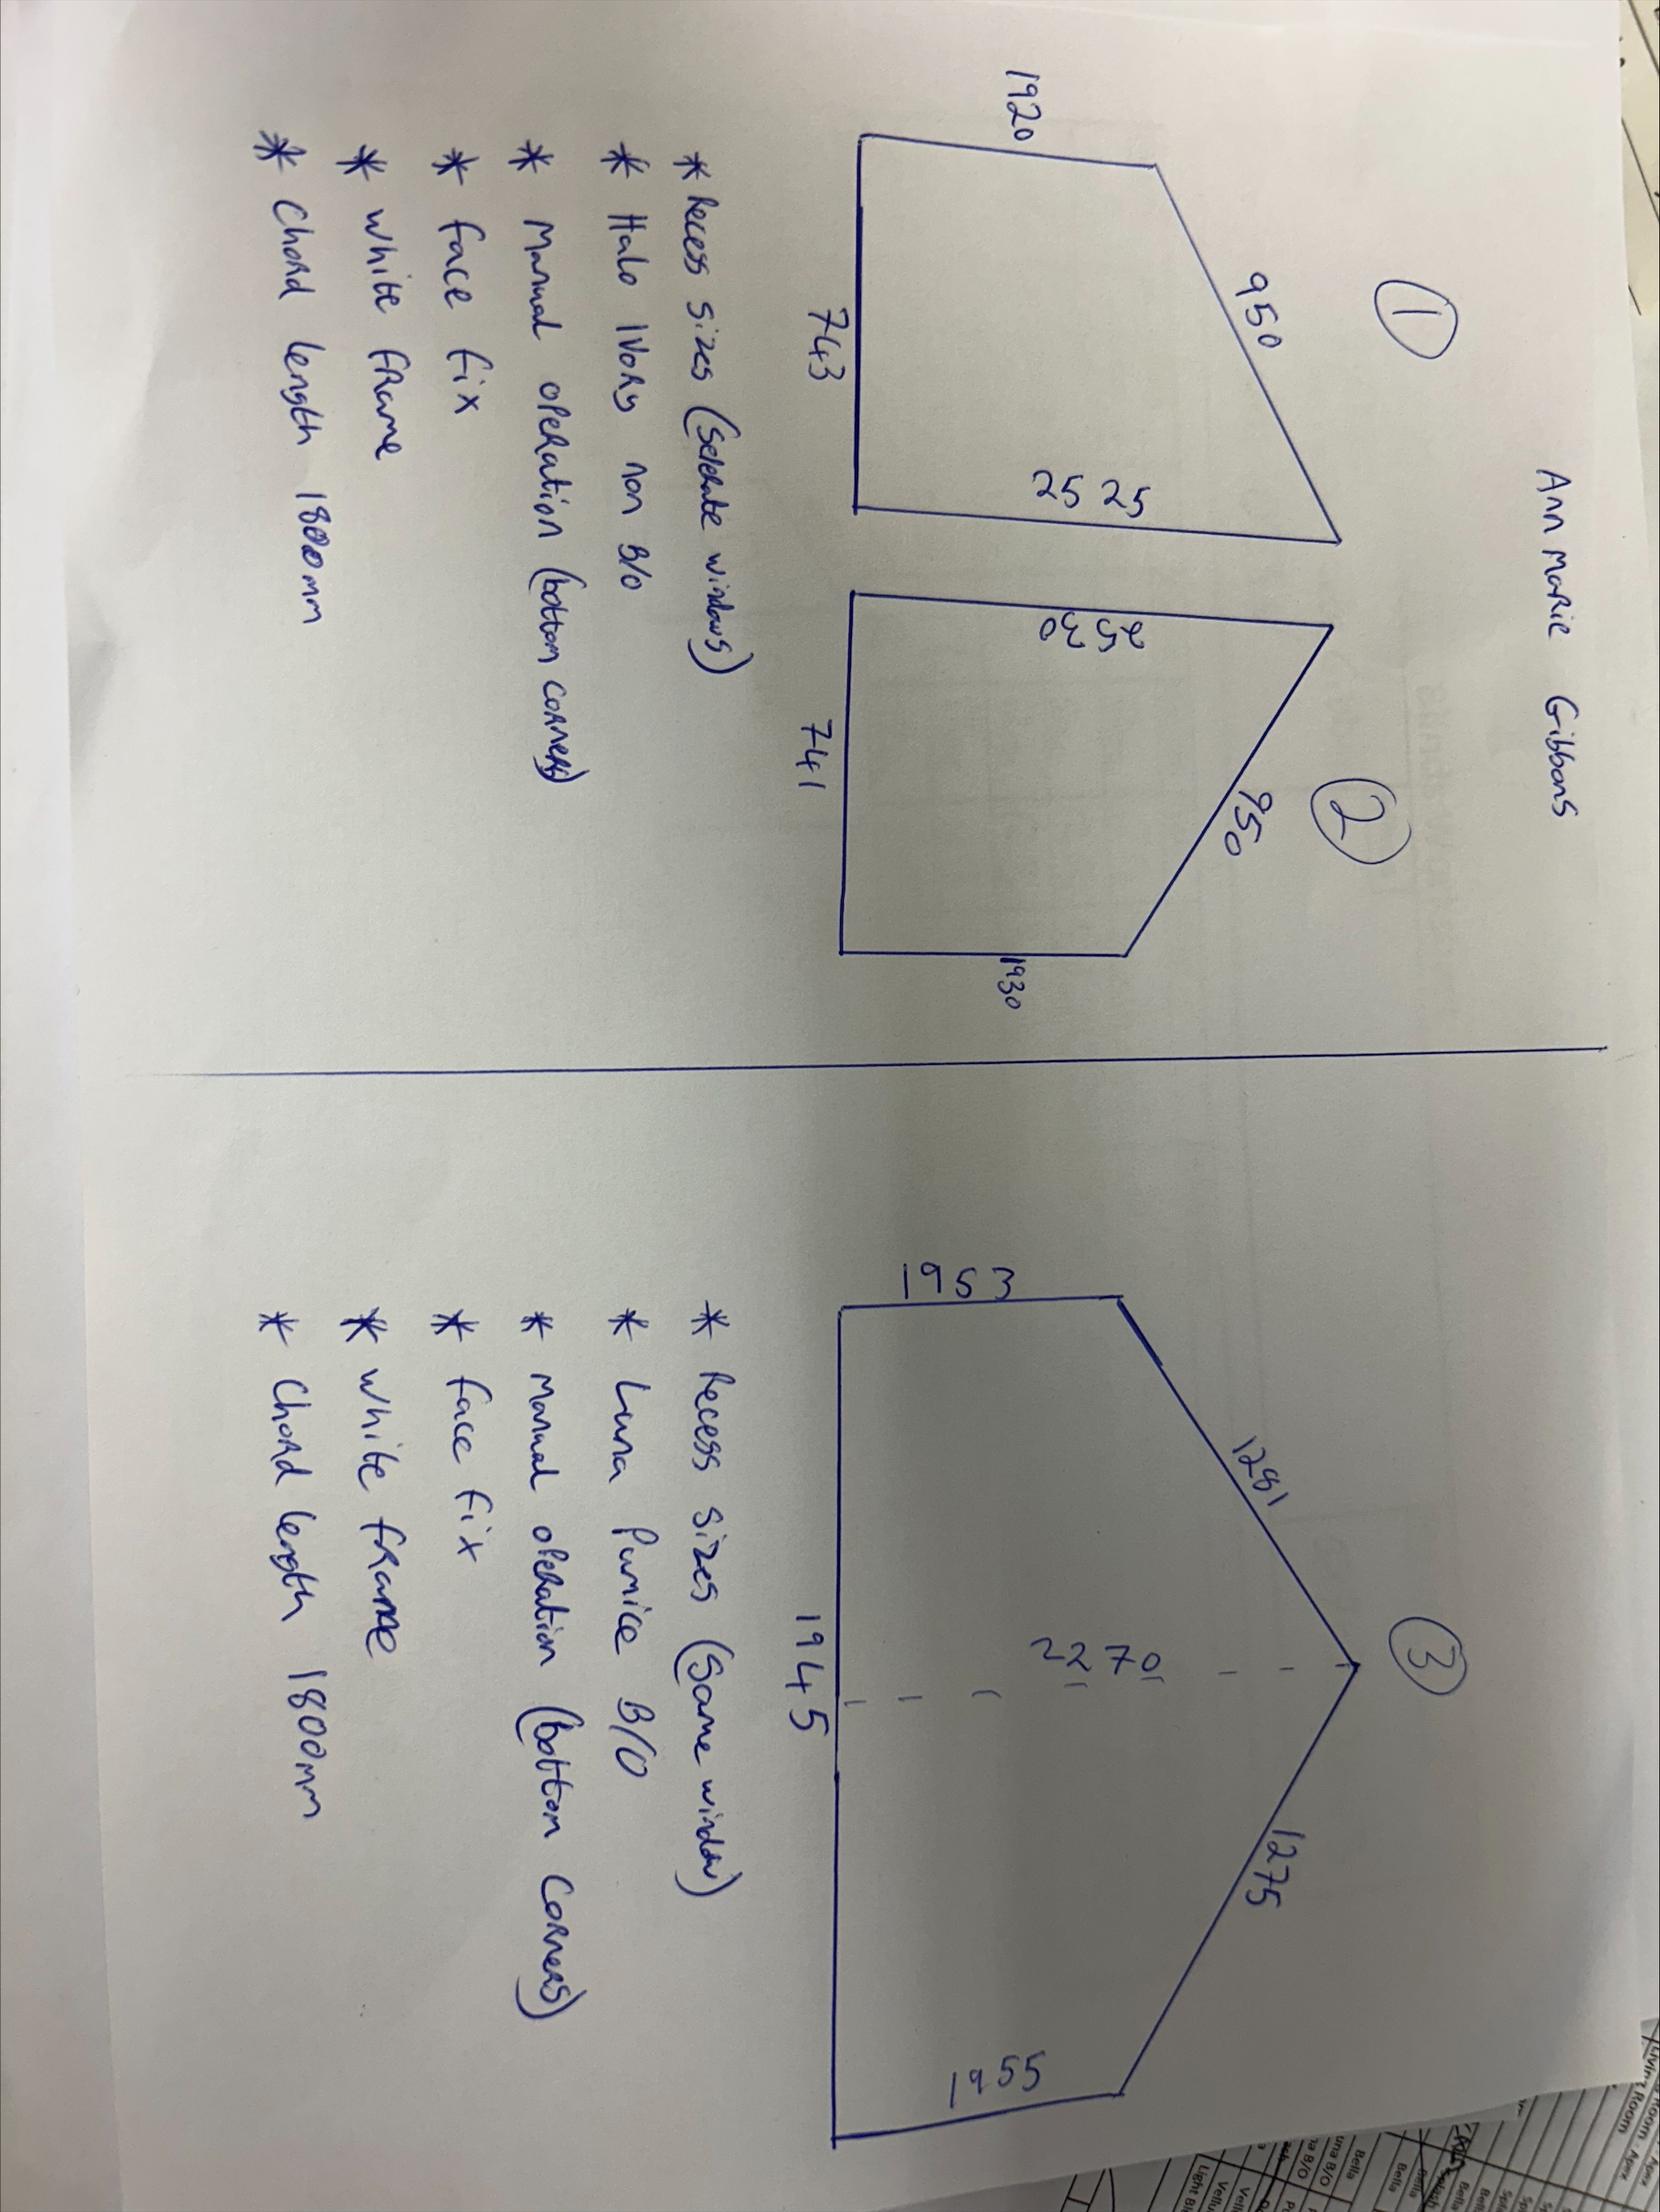 Ann Marie Gibbons
1
950
1920
2525
743
2
950
2530
1930
741
* Recess sizes (seperate windows)
* Halo Ivory non B/O
* Manual operation (bottom corners)
* face fix
* white frame
* Chord length 1800mm
3
1281
1275
1953
2270
1955
1945
* Recess sizes (same window)
* Luna Pumice B/O
* Manual operation (bottom corners)
* face fix
* white frame
* Chord length 1800mm
Living Room
Room - Apex
Bella
Bella
Bella
Light Bl